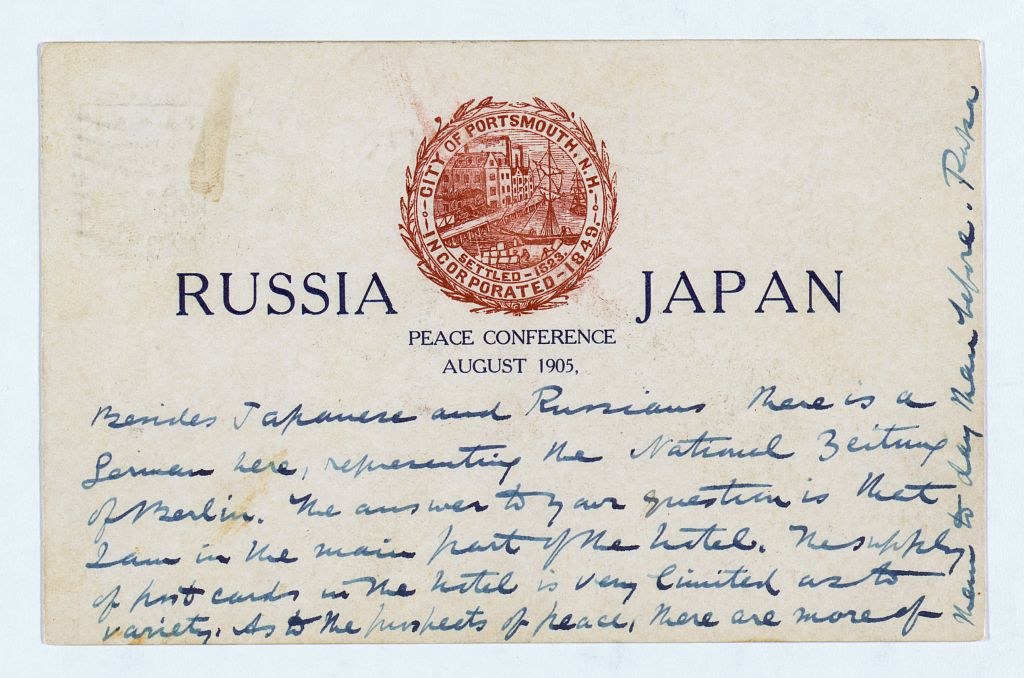 CITY OF PORTSMOUTH, N.H.
SETTLED-1623.
INCORPORATED-1849.
RUSSIA JAPAN
PEACE CONFERENCE
AUGUST 1905,
Besides Japanese and Russians there is a
German here, representing the National Zeitung
of Berlin. The answer to your question is that
I am in the main part of the hotel. The supply
of post cards in the hotel is very limited as to
variety. As to the prospects of peace, there are more of
them to day than before.